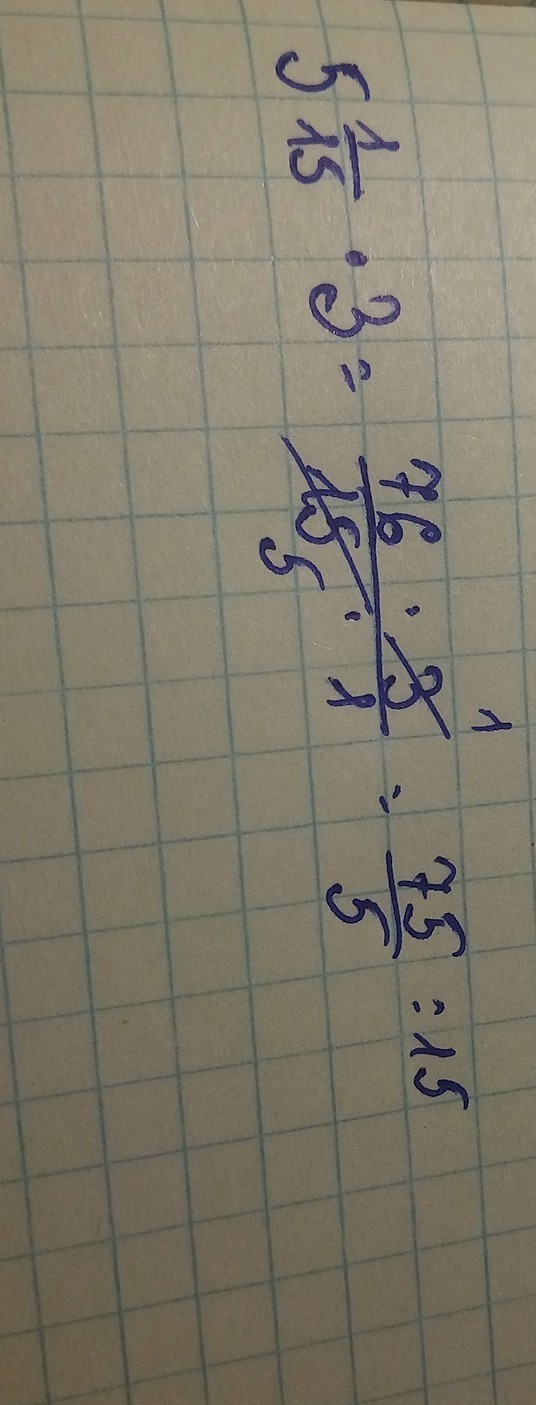 5 1/15 · 3 = 76 · 3 1 / 15 5 · 1 = 75/5 = 15